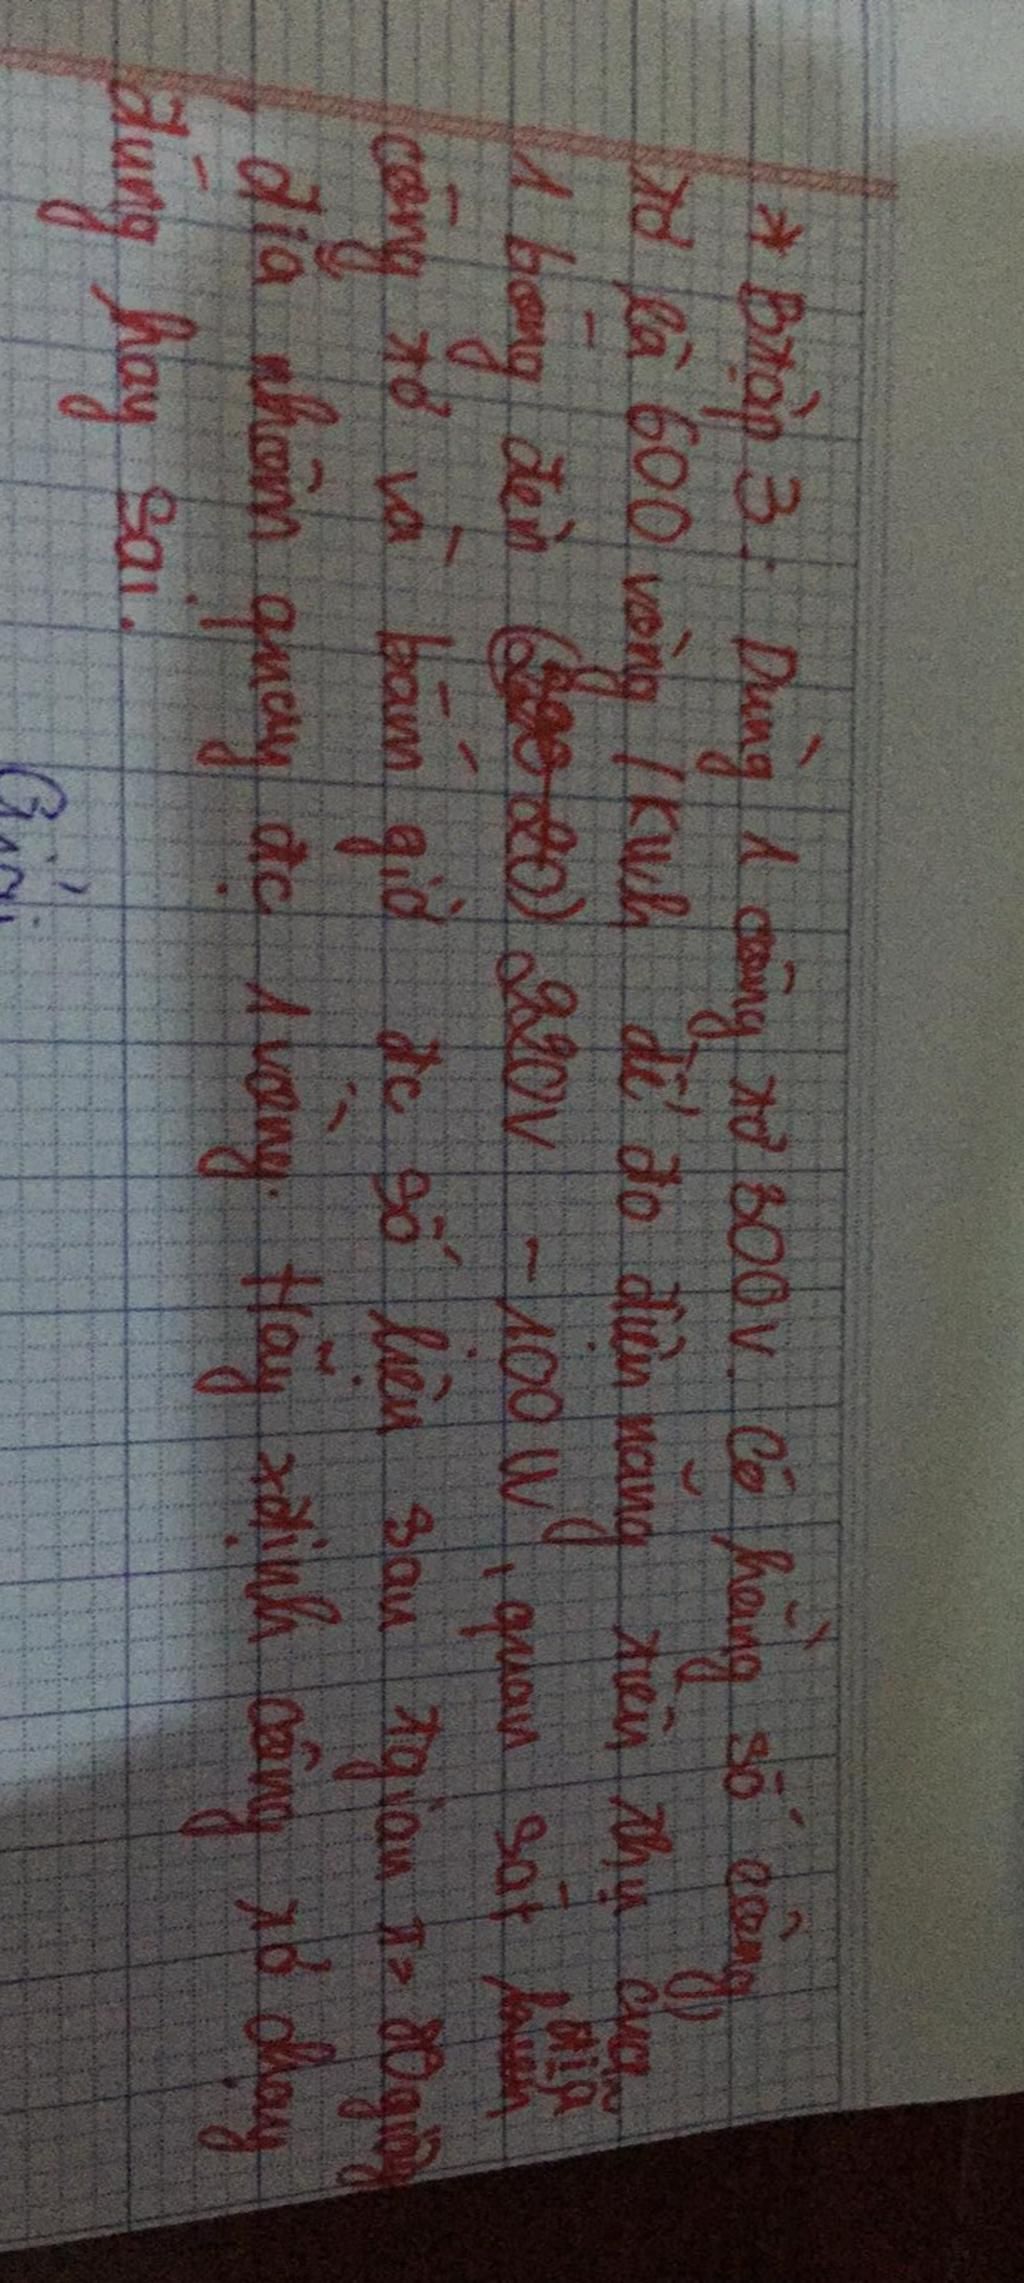 * Btập 3. Dùng 1 công tơ 300V. Có hằng số công
tơ là 600 vòng / kWh để đo điện năng tiêu thụ của
1 bóng đèn 220V - 100W, quan sát đĩa
công tơ và bấm giờ đc số liệu sau tgian t = 80giây
đĩa nhôm quay đc 1 vòng. Hãy xđịnh công tơ chạy
đúng hay sai.
Giải